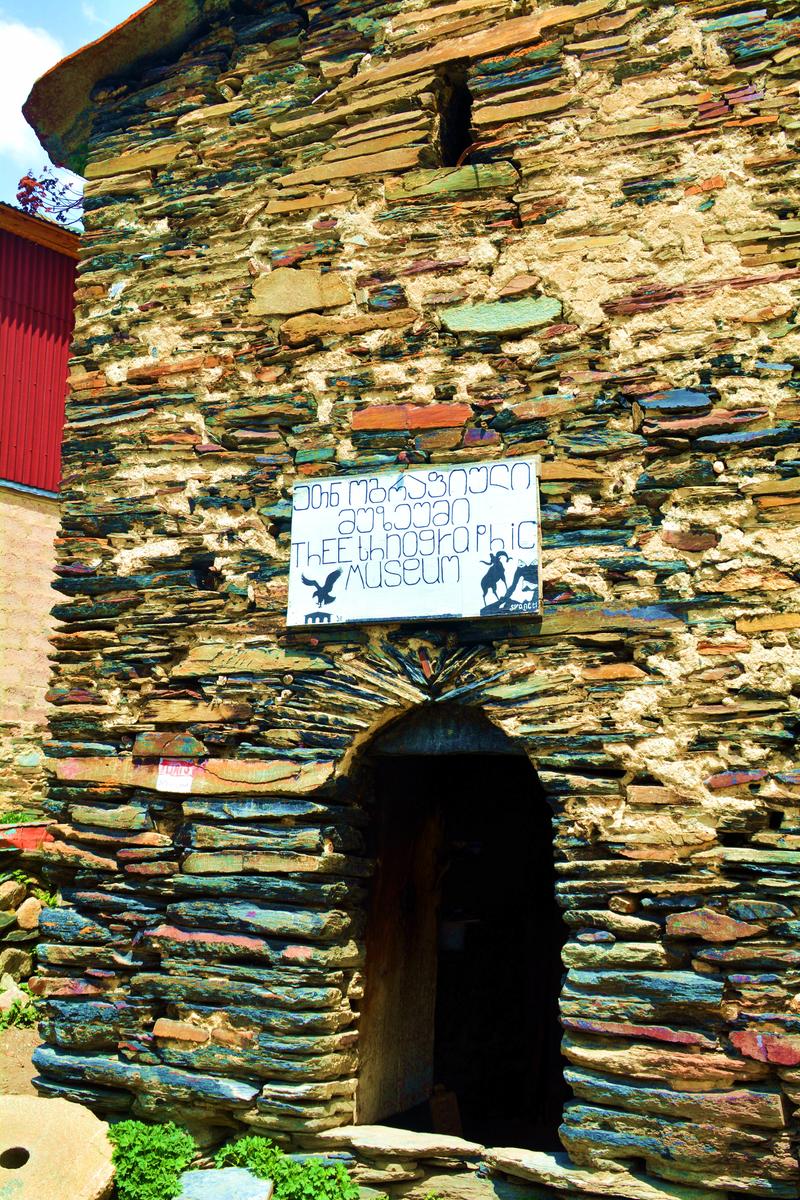 ეთნოგრაფიული
მუზეუმი
ThE Ethnographic
Museum
svaneti